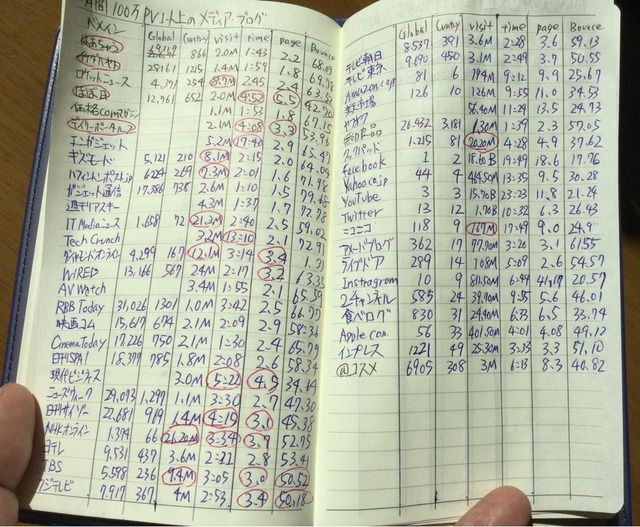 月間100万PV以上のメディア・ブログ
ドメイン Global Cuntry visit time page Bounce
はあちゅう 866 2.0M 1:43 2.2 68.09
28161 125 1.4M 1:59 1.8 69.98
ロケットニュース 4,391 254 2:45 2.4
ほぼ日 12,961 652 2.0M 4:52 5.5 42.90
価格comマガジン 1.1M 1:53 1.8 67.15
デイリーポータルZ 2.1M 4:08 3.3 53.96
エンガジェット 5.2M 17:40 2.9
ギズモード 5,121 210 8.1M 2:15 2.0 64.09
ハフィントンポスト.jp 6,224 269 7.3M 2:01 1.6 71.98
ガジェット通信 17,386 738 2.6M 1:10 1.5 79.48
週刊アスキー 4.3M 1:37 1.7 72.78
IT Mediaニュース 1,658 72 21.3M 2:40 2.5 59.02
Tech Crunch 3.2M 13:10 2.1 72.91
ダイヤモンドオンライン 4,299 167 12.1M 3:14 3.4
WIRED 13,166 567 24M 2:17 3.2 63.33
AV Watch 3.4M 1:55 2.1 65.59
RBB Today 31,026 1301 1.0M 3:42 2.5 66.75
映画コム 15,617 674 2.1M 2:09 2.9 58:34
Cinema Today 17,226 750 2.1M 1:30 2.4 65.79
日刊SPA! 18,377 785 1.8M 2:08 2.6 58.34
現代ビジネス 3.0M 5:22 4.5 34.44
ニューズウィーク 29,093 1,297 1.1M 3:30 2.7 47.30
日刊サイゾー 22,681 919 1.4M 4:15 3.1 45.38
NHKオンライン 1,374 66 26.20M 3:34 3.7 52.75
日テレ 9,531 437 3.6M 2:22 2.8 53.41
TBS 5,598 236 9.4M 3:05 3.0 50.52
フジテレビ 7,917 367 4M 2:53 3.4 50.18
Global Cuntry visit time page Bounce
テレビ朝日 8,537 391 3.6M 2:28 3.6 59.13
テレビ東京 9,690 450 3.1M 2:49 3.7 50.55
Amazon.com 81 6 194M 9:12 9.9 25.67
楽天市場 126 10 126M 9:55 11.0 34.53
ヤフオク 56.40M 11:24 13.5 24.73
無印良品 26,432 3,181 1.30M 1:39 2.3 57.05
クックパッド 1,215 81 20.20M 4:28 4.9 37.62
Facebook 1 2 18.60B 19:49 18.6 17.76
Yahoo.co.jp 44 4 464.50M 13:35 9.5 30.28
YouTube 3 3 15.70B 23:23 11.8 21.24
Twitter 13 12 1.70B 10:32 6.3 26.43
ニコニコ 118 9 167M 17:49 9.0 24.9
アメーバブログ 362 17 97.70M 3:20 3.1 6155
ライブドア 299 14 108M 5:09 2.6 54.57
Instagram 10 9 811.50M 6:44 41.17 20.57
2チャンネル 585 24 39.70M 9:35 5.6 46.01
食べログ 830 31 24.40M 6:33 6.5 33.74
Apple.com 56 33 401.50M 4:01 4.08 49.12
インプレス 1221 49 25.30M 3:23 3.3 51.10
@コスメ 6905 308 3M 6:13 8.3 40.82